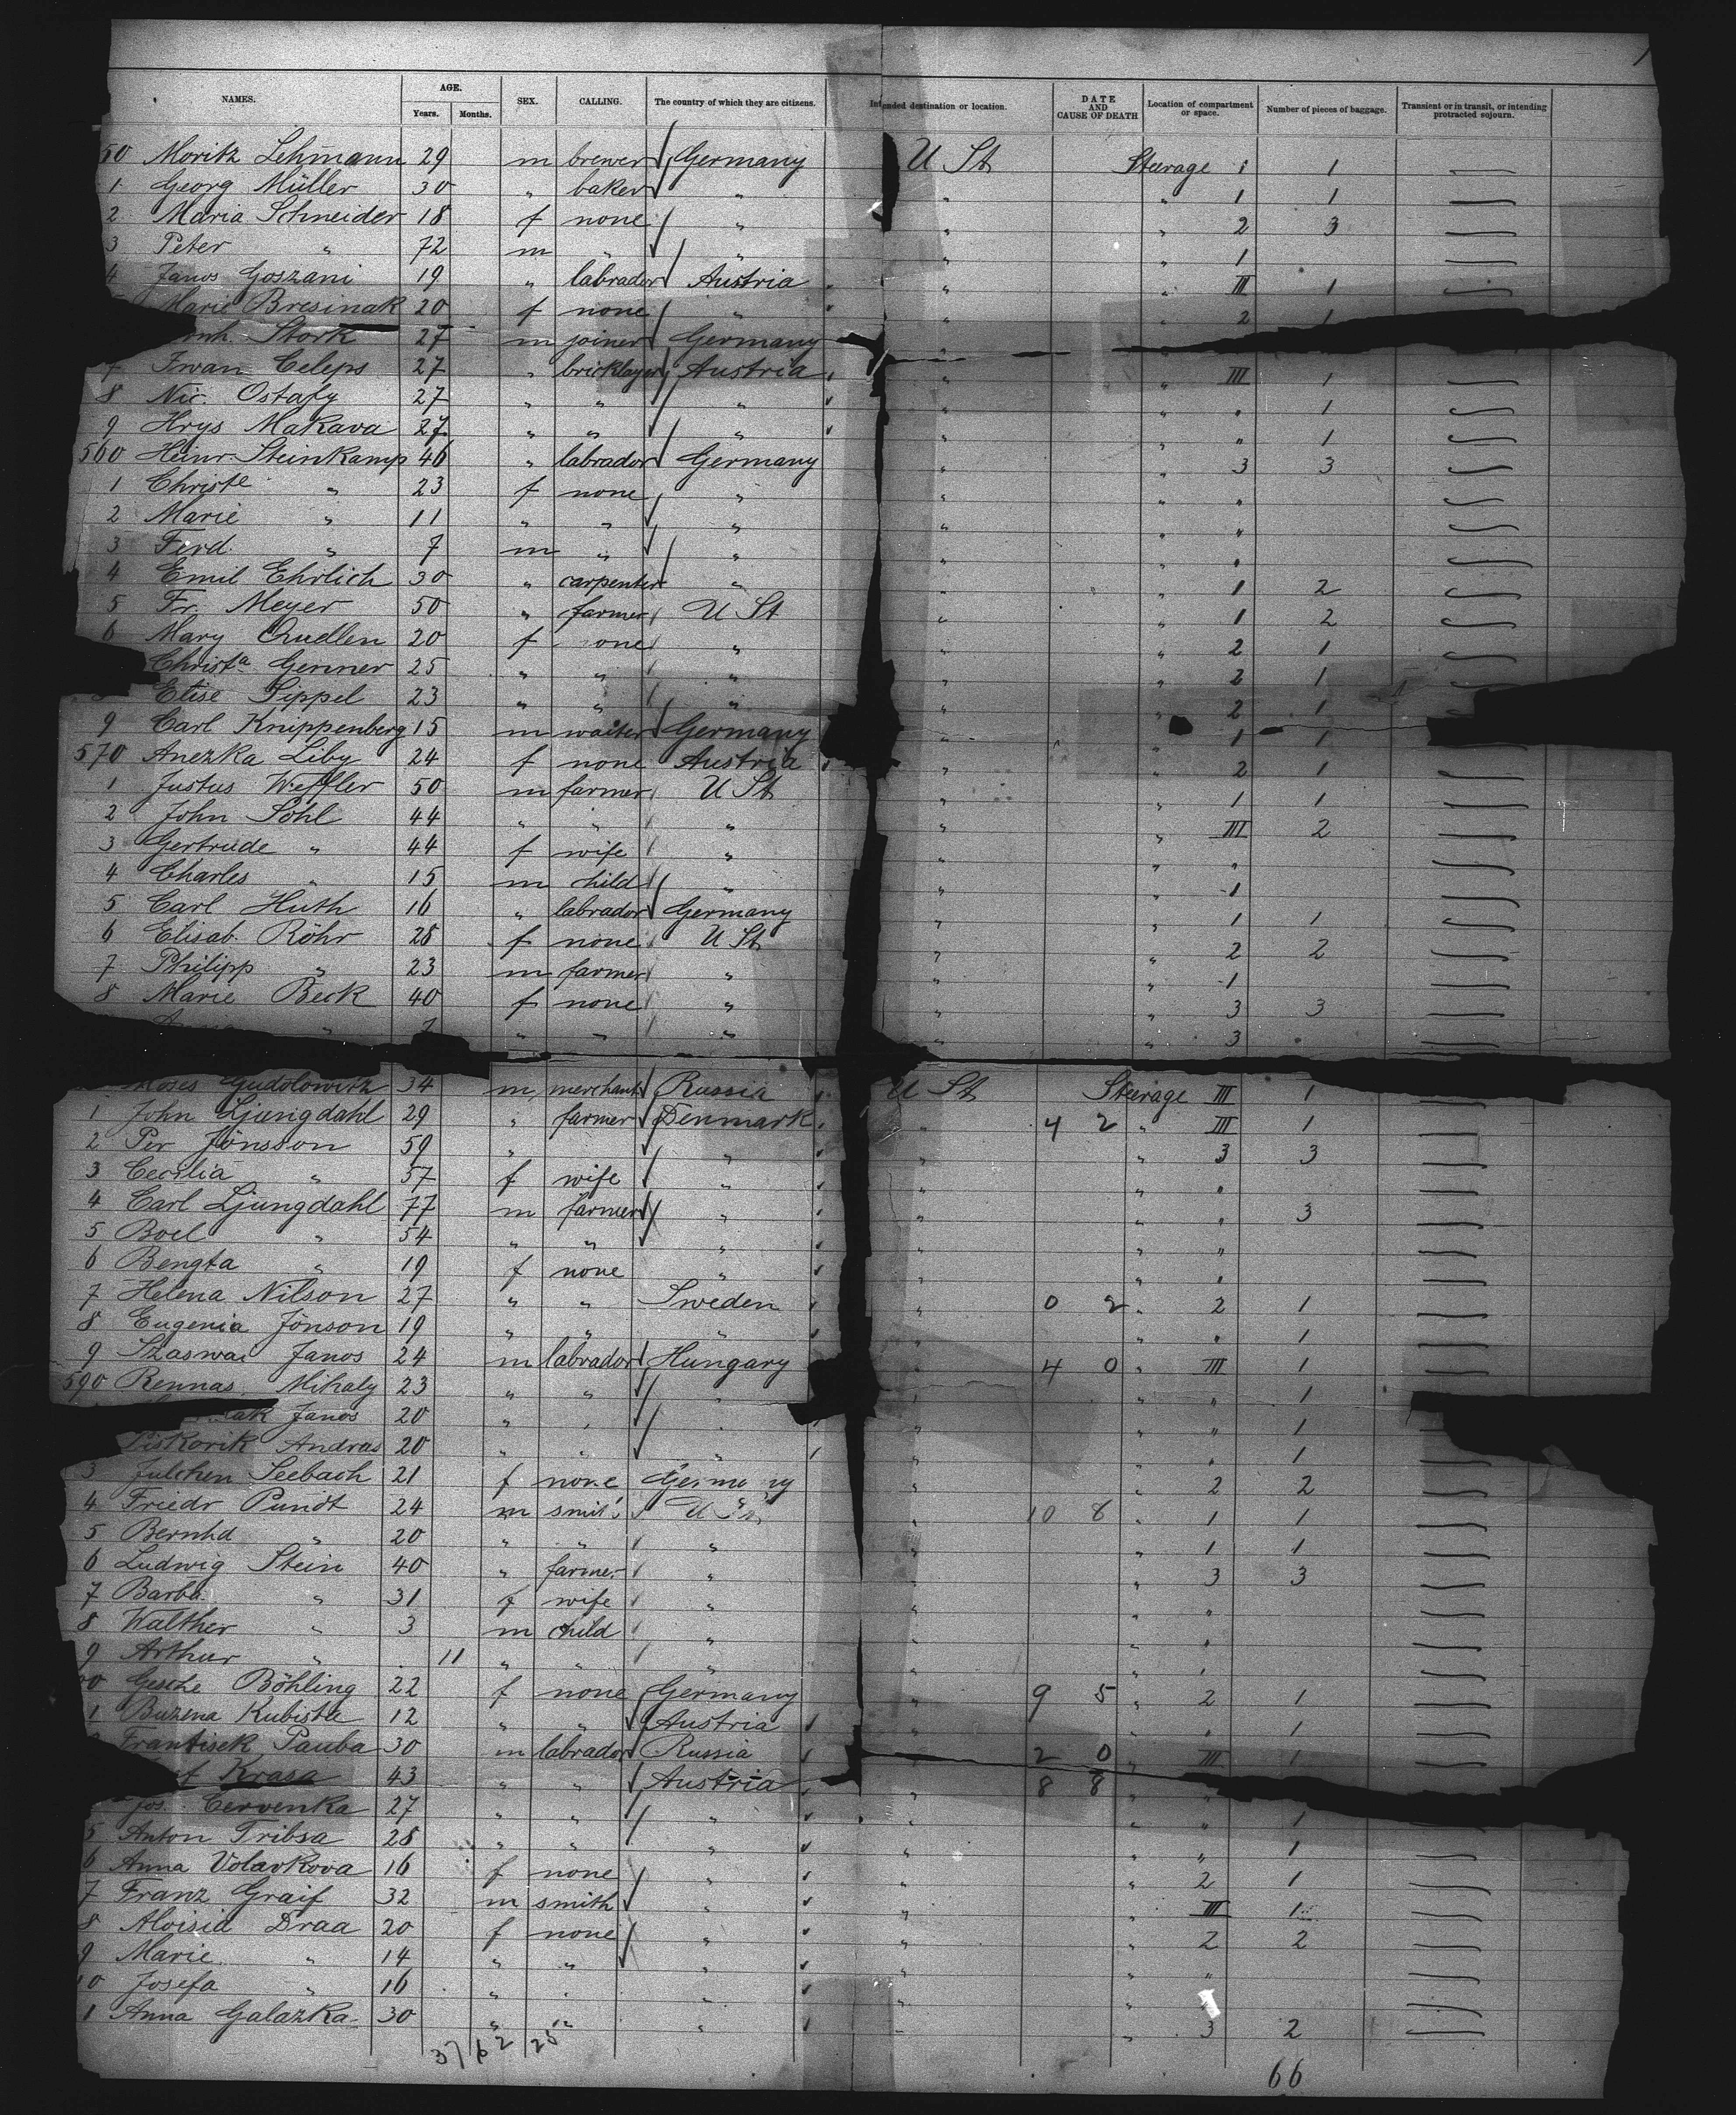 NAMES. AGE. SEX. CALLING. The country of which they are citizens. Intended destination or location. DATE AND CAUSE OF DEATH Location of compartment or space. Number of pieces of baggage. Transient or in transit, or intending protracted sojourn.
Years. Months.
50 Moritz Lehmann 29 m brewer Germany U St Steerage 1 1 —
1 Georg Müller 30 " baker " " " 1 1 —
2 Maria Schneider 18 f none " " " 2 3 —
3 Peter " 72 m " " " " 1 —
4 Janos Goszani 19 " labrador Austria " " III 1 —
Marie Bresinak 20 f none " " " 2 1
Stork 27 m joiner Germany "
7 Iwan Celeps 27 " bricklayer Austria " " III 1 —
8 Nic. Ostafy 27 " " " " " " 1 —
9 Hrys Makava 27 " " " " " " 1 —
560 Heinr. Steinkamp 46 " labrador Germany " " 3 3 —
1 Christe " 23 f none " " " " —
2 Marie " 11 " " " " " " —
3 Ferd. " 7 m " " " " " —
4 Emil Ehrlich 30 " carpenter " " " 1 2 —
5 Fr. Meyer 50 " farmer U St " " 1 2 —
6 Mary Quellen 20 f one " " " 2 1 —
Christa Genner 25 " " " " " 2 1 —
8 Elise Sippel 23 " " " " " 2 1
9 Carl Knippenberg 15 m waiter Germany " " 1 1
570 Anezka Liby 24 f none Austria " " 2 1 —
1 Justus Weffler 50 m farmer U St " " 1 1 —
2 John Söhl 44 " " " " " III 2 —
3 Gertrude " 44 f wife " " " " —
4 Charles " 15 m child " " " 1 —
5 Carl Huth 16 " labrador Germany " " 1 1 —
6 Elisab. Röhr 28 f none U St " " 2 2 —
7 Philipp " 23 m farmer " " " 1 —
8 Marie Beck 40 f none " " " 3 3 —
" 7 " " " " " 3 —
Moses Gudolowitz 34 m merchant Russia U St Steerage III 1 —
1 John Ljungdahl 29 " farmer Denmark " 4 2 " III 1 —
2 Per Jönsson 59 " " " " 3 3 —
3 Cecilia " 57 f wife " " " " —
4 Carl Ljungdahl 77 m farmer " " " " 3 —
5 Boel " 54 " " " " " " —
6 Bengta " 19 f none " " " " —
7 Helena Nilson 27 " " Sweden " 0 2 " 2 1 —
8 Eugenia Jönson 19 " " " " " " 1 —
9 Szaswai Janos 24 m labrador Hungary " 4 0 " III 1 —
590 Rennas Mihaly 23 " " " " " " 1 —
Janos 20 " " " " " " 1 —
Piskorik Andras 20 " " " " " " 1 —
3 Julchen Seebach 21 f none Germany " " 2 2 —
4 Friedr Pundt 24 m smith U St " 10 8 " 1 1 —
5 Bernhd " 20 " " " " " 1 1 —
6 Ludwig Stein 40 " farmer " " " 3 3 —
7 Barba. " 31 f wife " " " " —
8 Walther " 3 m child " " " " —
9 Arthur " 11 " " " " " " —
00 Gesche Böhling 22 f none Germany " 9 5 " 2 1 —
1 Buzena Kubista 12 " " Austria " " " 1 —
Frantisek Pauba 30 m labrador Russia " 2 0 " III 1 —
Krasa 43 " " Austria " 8 8 " "
Jos. Cervenka 27 " " " " " " 1
5 Anton Tribsa 28 " " " " " " 1 —
6 Anna Volavkova 16 f none " " " 2 1 —
7 Franz Graif 32 m smith " " " III 1 —
8 Aloisia Draa 20 f none " " " 2 2 —
9 Marie " 14 " " " " " " —
10 Josefa " 16 " " " " " —
1 Anna Galazka 30 " " " " " 3 2 —
37 62 25
66